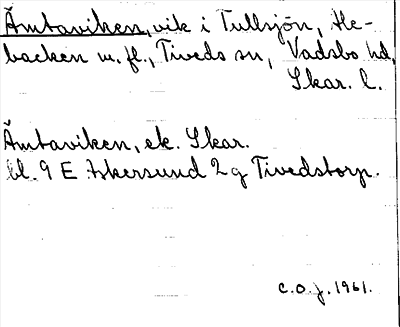 Ämtaviken, vik i Tullsjön, He-
backen m. fl., Tiveds sn, Vadsbo hd,
Skar. l.
Ämtaviken, ek. Skar.
bl. 9 E Askersund 2 g Tivedstorp.
C.O.J. 1961.